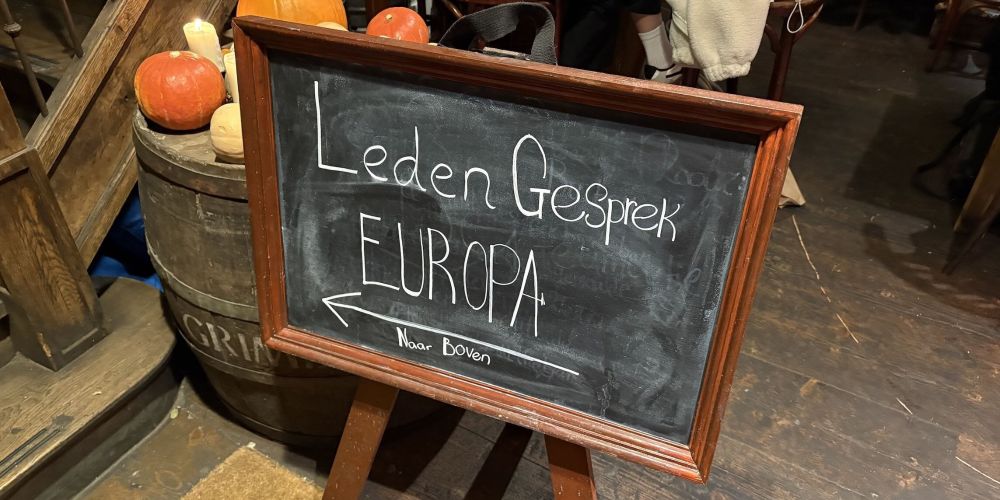 Leden Gesprek
EUROPA
Naar Boven